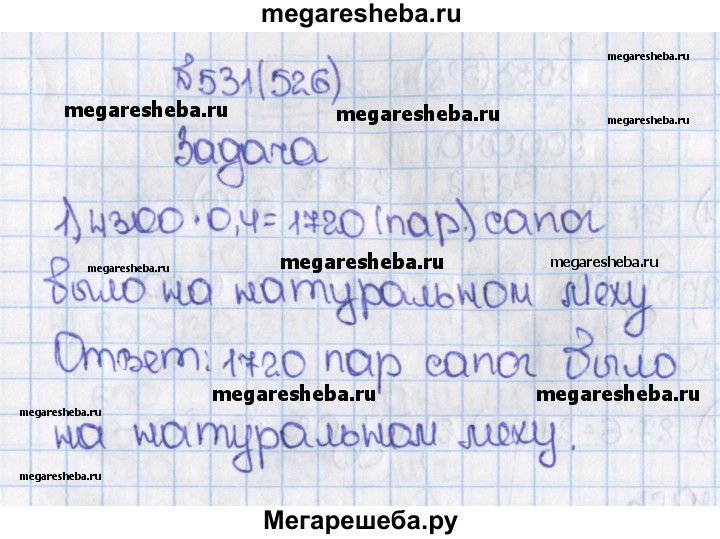 megaresheba.ru
№531(526)
megaresheba.ru
megaresheba.ru
megaresheba.ru
Задача
1) 4300·0,4=1720(пар.) сапог
megaresheba.ru
megaresheba.ru
megaresheba.ru
было на натуральном меху
Ответ: 1720 пар сапог было
megaresheba.ru
megaresheba.ru
megaresheba.ru
на натуральном меху.
megaresheba.ru
Мегарешеба.ру